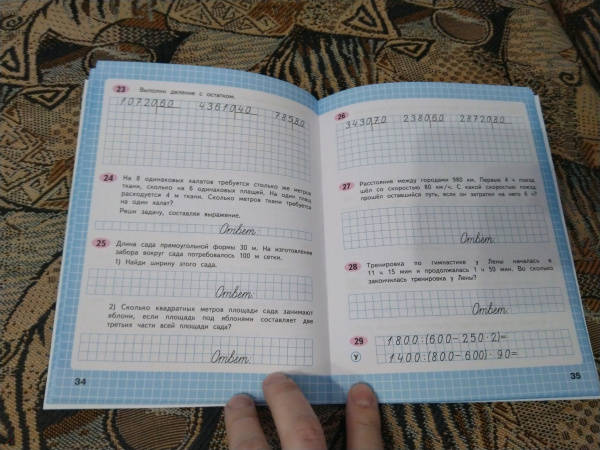 23 Выполни деление с остатком.
10720 60 43610 40 785 80
24 На 8 одинаковых халатов требуется столько же метров
ткани, сколько на 6 одинаковых плащей. На один плащ
расходуется 4 м ткани. Сколько метров ткани требуется
на один халат?
Реши задачу, составляя выражение.
Ответ:
25 Длина сада прямоугольной формы 30 м. На изготовление
забора вокруг сада потребовалось 100 м сетки.
1) Найди ширину этого сада.
Ответ:
2) Сколько квадратных метров площади сада занимают
яблони, если площадь под яблонями составляет две
третьих части всей площади сада?
Ответ:
34
26
3430 70 2380 60 28720 80
27 Расстояние между городами 560 км. Первые 4 ч поезд
шёл со скоростью 80 км/ч. С какой скоростью поезд
прошёл оставшийся путь, если он затратил на него 6 ч?
Ответ:
28 Тренировка по гимнастике у Лены началась в
11 ч 15 мин и продолжалась 1 ч 50 мин. Во сколько
закончилась тренировка у Лены?
Ответ:
29 1800:(600−250·2)=
У 1400:(800−600)·90=
35